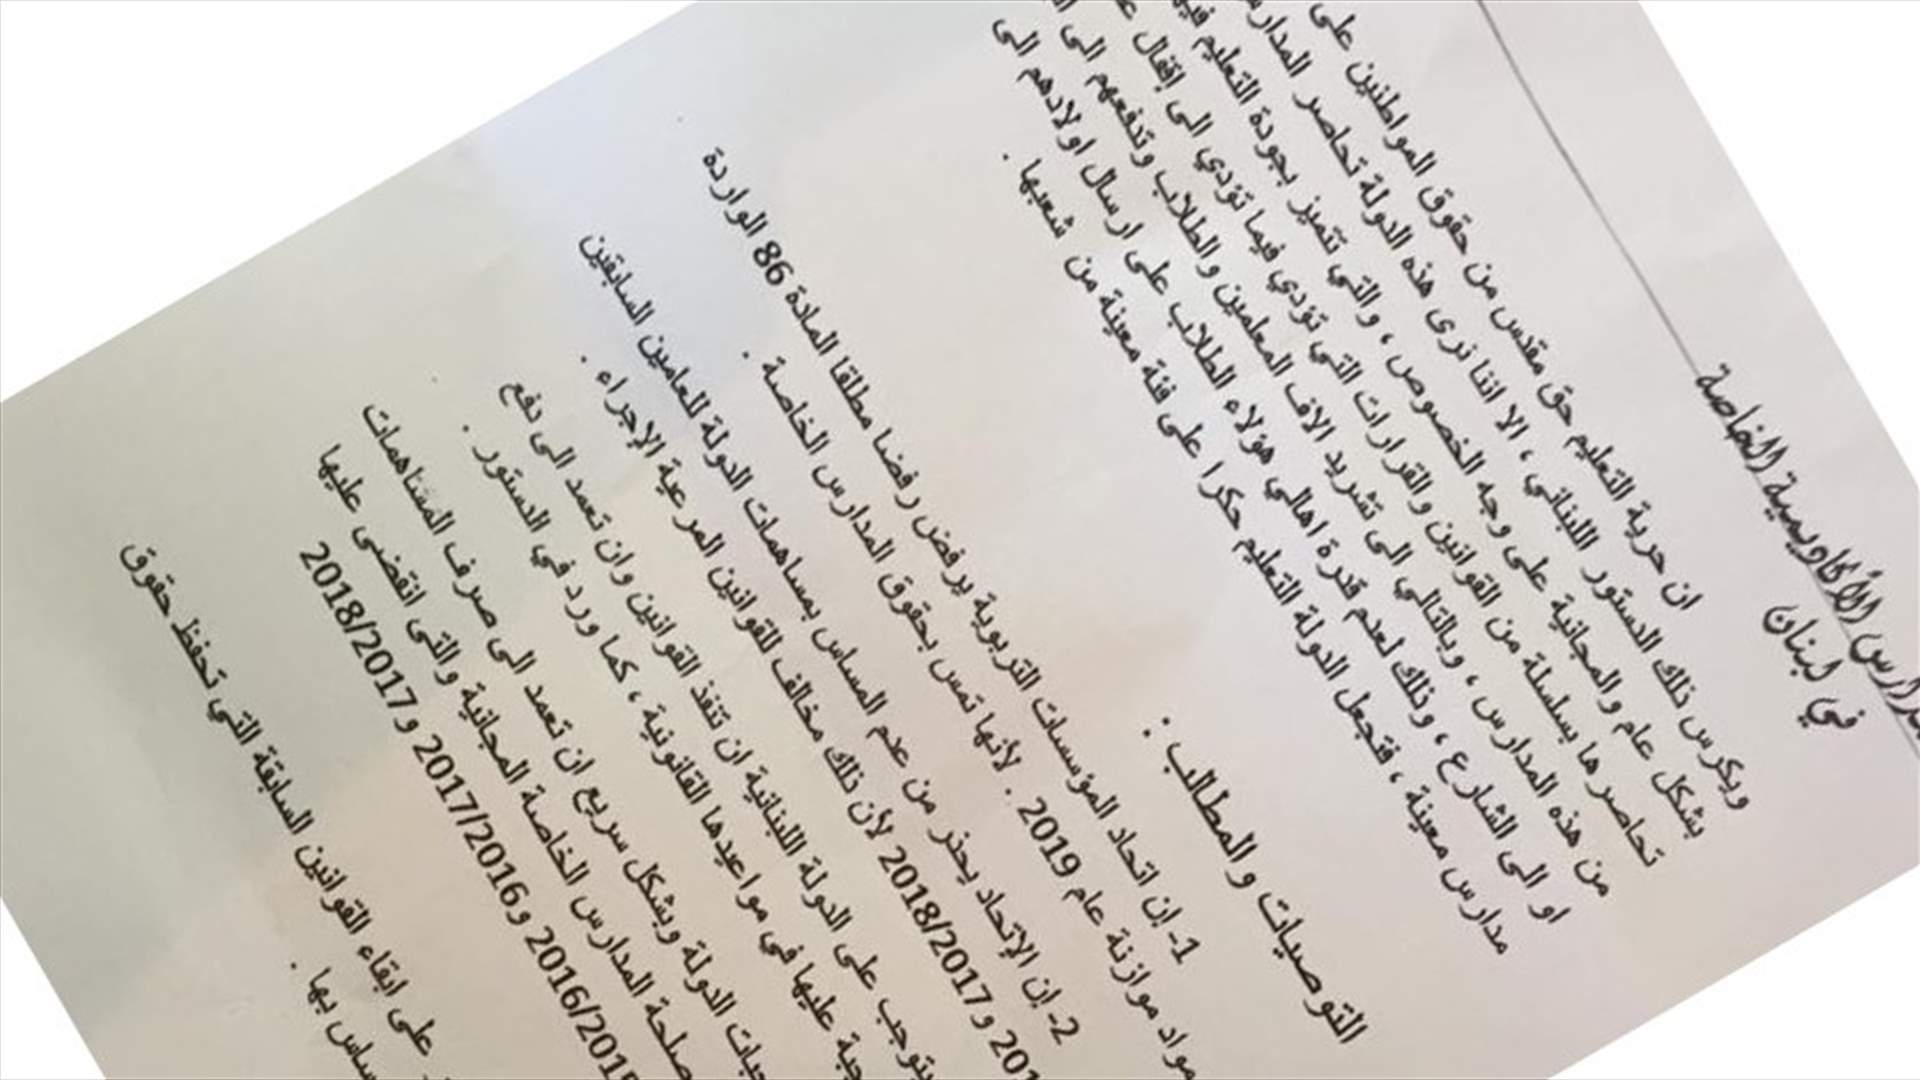 المدارس الأكاديمية الخاصة
في لبنان
ان حرية التعليم حق مقدس من حقوق المواطنين على
ويكرس ذلك الدستور اللبناني ، الا اننا نرى هذه الدولة تحاصر المدارس
بشكل عام والمجانية على وجه الخصوص ، والتي تتميز بجودة التعليم فيها
تحاصرها بسلسلة من القوانين والقرارات التي تؤدي فيما تؤدي الى اقفال
من هذه المدارس ، وبالتالي الى تشريد الاف المعلمين والطلاب وتدفعهم الى
او الى الشارع ، وذلك لعدم قدرة اهالي هؤلاء الطلاب على ارسال اولادهم الى
مدارس معينة ، فتجعل الدولة التعليم حكرا على فئة معينة من شعبها .
التوصيات والمطالب :
1- إن اتحاد المؤسسات التربوية يرفض رفضا مطلقا المادة 86 الواردة
مواد موازنة عام 2019 . لأنها تمس بحقوق المدارس الخاصة .
2- إن الإتحاد يحذر من عدم المساس بمساهمات الدولة للعامين السابقين
و 2018/2017 لأن ذلك مخالف للقوانين المرعية الإجراء .
يتوجب على الدولة اللبنانية ان تنفذ القوانين وان تعمد الى دفع
عليها في مواعيدها القانونية ، كما ورد في الدستور .
الدولة وبشكل سريع ان تعمد الى صرف المساهمات
المدارس الخاصة المجانية والتي انقضى عليها
2016/2015 و 2017/2016 و 2018/2017
على ابقاء القوانين السابقة التي تحفظ حقوق
بها .